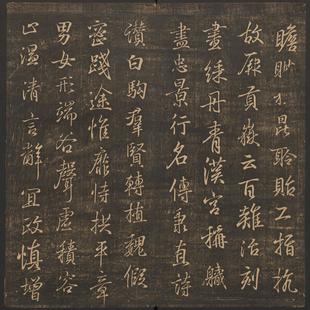 瞻眺昆聆貽工指執
故厥貢嶽云百雜治刻
畫綵丹青漢宮稱職
盡忠景行名傳秉直詩
讚白駒群賢轉植魏假
密踐途惟靡恃拱平章
男女形端谷聲虛積容
止溫清言辭宜政慎增